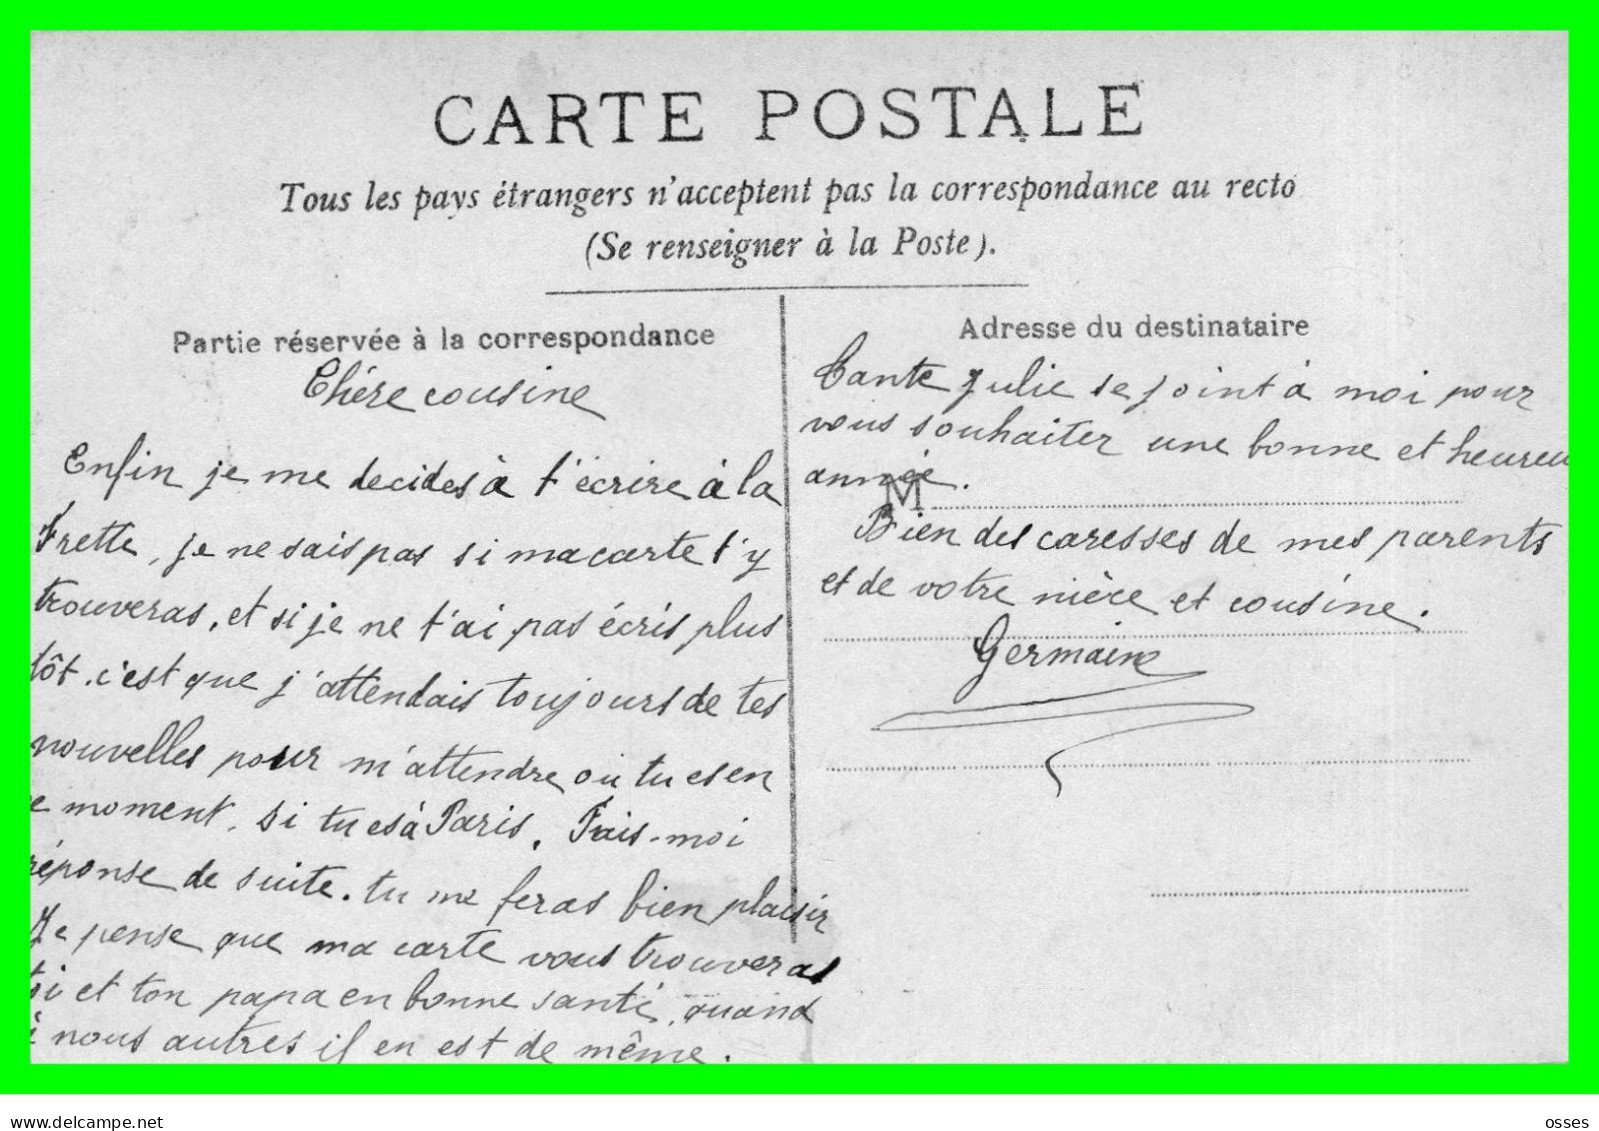 CARTE POSTALE
Tous les pays étrangers n'acceptent pas la correspondance au recto
(Se renseigner à la Poste).
Partie réservée à la correspondance
Chére cousine
Enfin je me decides à t'écrire à la
Frette, je ne sais pas si ma carte t'y
trouveras, et si je ne t'ai pas écris plus
tôt. c'est que j'attendais toujours de tes
nouvelles pour m'attendre où tu es en
e moment, si tu es à Paris. Fais-moi
réponse de suite. tu me feras bien plaisir
Je pense que ma carte vous trouveras
toi et ton papa en bonne santé, quand
à nous autres il en est de même.
Adresse du destinataire
Tante Julie se joint à moi pour
vous souhaiter une bonne et heureu
année.
M
Bien des caresses de mes parents
et de votre nièce et cousine.
Germaine
delcampe.net
osses